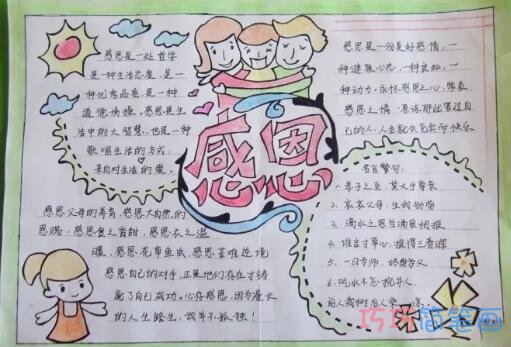 感恩是一处哲学
是一种生活态度,是一
种优秀品质,是一种
道德情操,感恩是生
活中的大智慧,也是一种
歌唱生活的方式。
来自对生活的爱。
感恩
感恩是一份美好感情,一
种健康心态,一种良知,一
种动力,永怀感恩之心,常表
感恩之情,原谅那些害过自
己的人,人生就会充实而快乐
名言警句:
1、孝子之至,莫大乎尊亲
2、哀哀父母,生我劬劳
3、滴水之恩当涌泉相报
4、谁言寸草心,报得三春晖
5、一日为师,终身为父
6、吃水不忘挖井人,
前人栽树后人乘
感恩父母的养育,感恩大自然的
恩赐,感恩食之香甜,感恩衣之温
暖,感恩花草鱼虫,感恩苦难逆境
感恩自己的对手,正是他们存在才铸
就了自己成功,心存感恩,因为漫长
的人生路程,我并不孤独!
巧巧简笔画